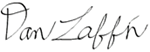 Dan Laffin